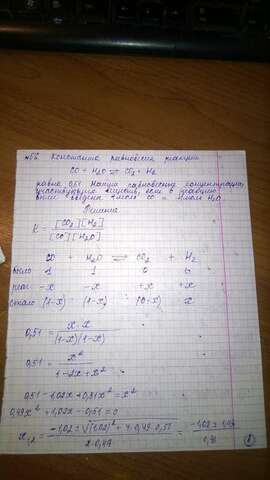 №56 Константа равновесия реакции
CO + H₂O ⇌ CO₂ + H₂
равна 0,51. Найти равновесные концентрации
участвующих веществ, если в реакцию
были введены 1 моль CO и 1 моль H₂O
Решение
K = [CO₂][H₂] / [CO][H₂O]
CO + H₂O ⇌ CO₂ + H₂
было 1 1 0 0
-x -x +x +x
стало (1-x) (1-x) x
0,51 = x · x / (1-x)(1-x)
0,51 = x² / 1-2x+x²
0,51 - 1,02x + 0,51x² = x²
0,49x² + 1,02x - 0,51 = 0
x₁,₂ = -1,02 ± √(1,02)² + 4·0,49·0,51 / 2·0,49 =